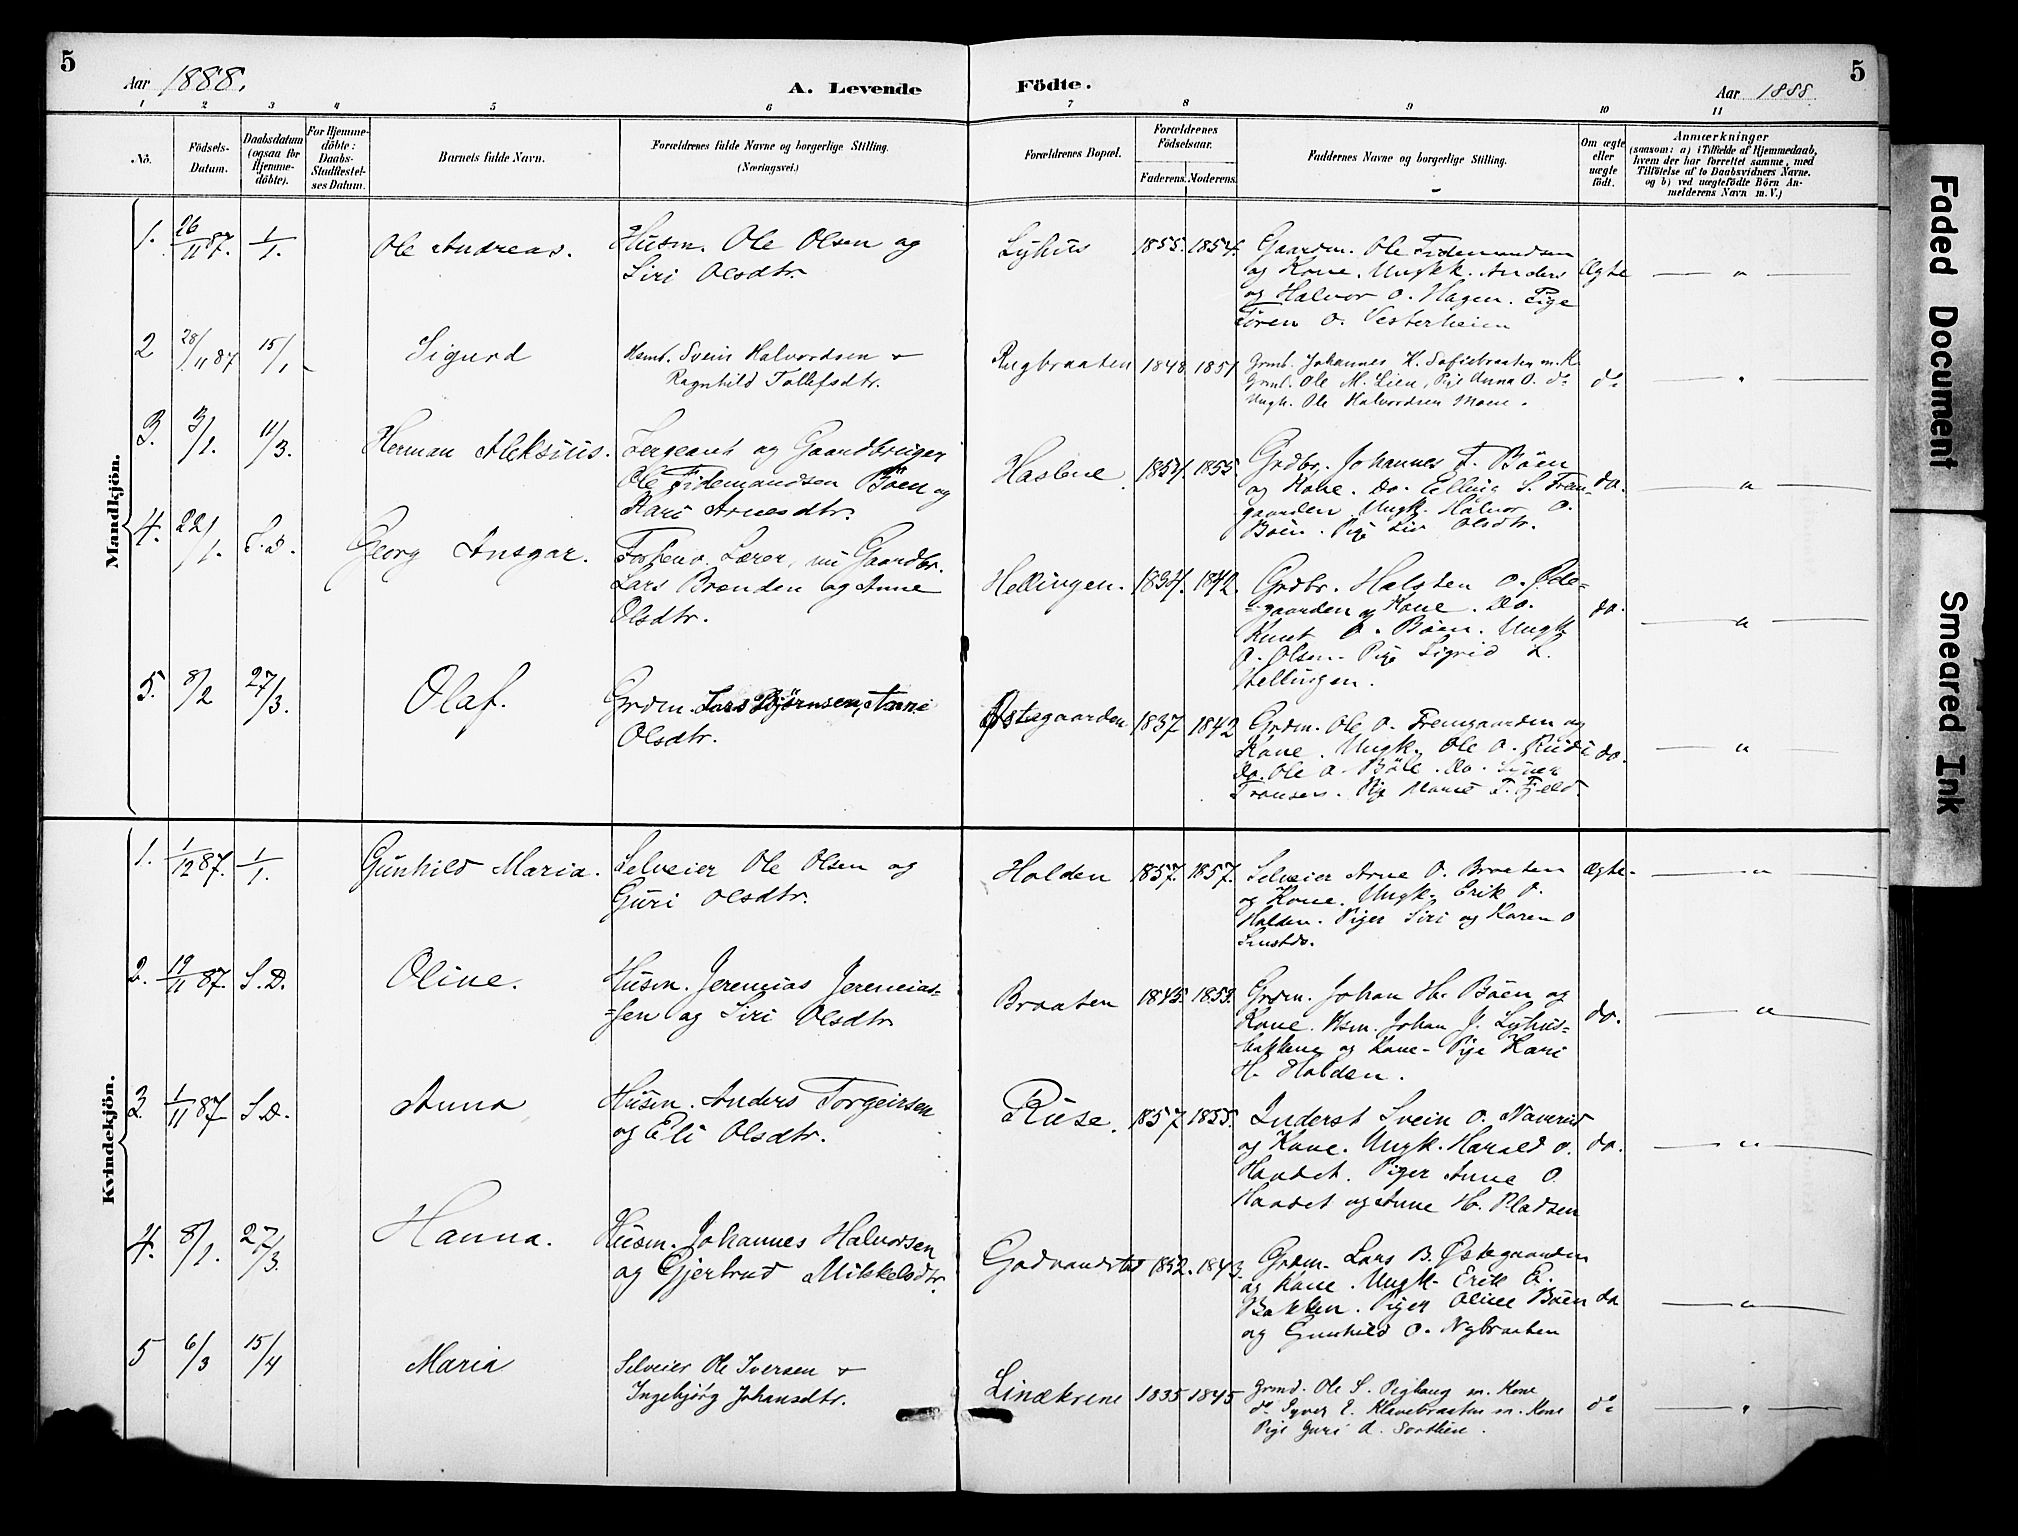 5
Aar 1888.
A. Levende
Födte.
Aar 1888.
5
1 2 3 4 5 6 7 8 9 10 11
No.
Födsels-
Datum.
Daabsdatum
(ogsaa for
Hjemme-
döbte).
For Hjemme-
döbte:
Daabs-
Stadfæstel-
ses Datum.
Barnets fulde Navn.
Forældrenes fulde Navne og borgerlige Stilling.
(Næringsvei.)
Forældrenes Bopæl.
Forældrenes
Födselsaar.
Faderens. Moderens.
Faddernes Navne og borgerlige Stilling.
Om ægte
eller
uægte
født.
Anmærkninger
(saasom: a) i Tilfælde af Hjemmedaab,
hvem der har forrettet samme, med
Tilföielse af to Daabsvidners Navne.
og b) ved uægtefödte Börn An-
melderens Navn m. V.)
Mandkjön.
1.
26/11 87.
1/1.
Ole Andreas.
Husm. Ole Olsen og
Siri Olsdtr.
Lyhus
1855. 1854.
Gaardm. Ole Tidemandsen
og Kone. Ungk. Anders
og Halvor O. Hagen. Pige
O. Vesterheim
Ægte
— " —
2
28/11 87
15/1
Sigurd
Husmd. Svein Halvordsen &
Ragnhild Tollefsdtr.
Rugbraaten
1848 1851
Grmd. Johannes H. m. K.
Grmd. Ole M. Lien, Pige Anna O. do
Ungk. Ole Halvordsen Moen.
do
— " —
3.
3/1.
11/3.
Herman Aleksius.
Sergeant og Gaardbruger
Ole Tidemandsen Böen og
Kari Arnesdtr.
Haslene.
1854. 1855.
Grdbr. Johannes T. Böen
og Kone. Do. Elling S. Frem-
gaarden. Ungk. Halvor O.
Böen. Pige Liv Olsdtr.
do.
— " —
4.
22/1.
S.D.
Georg Ansgar.
Forhenv. Lærer, nu Gaardbr.
Lars Brænden og Anne
Olsdtr.
Hellingen.
1834. 1842.
Grdbr. Halsten O. Øde-
gaarden og Kone. Do.
Knut O. Böen. Ungk.
O. Olsen. Pige Sigrid L.
Hellingen.
do.
— " —
5.
8/2
27/3.
Olaf.
Grdm. Lars Bjørnsen, Anne
Olsdtr.
Østegaarden
1837 1842
Grdm. Ole O. Fremgaarden og
Kone. Ungk. Ole O. Rudi
Do. Ole O. Do.
Fransen. Pige Marie T. Fjeld.
do.
— " —
Kvindekjön.
1.
1/12 87.
1/1.
Gunhild Maria.
Selveier Ole Olsen og
Guri Olsdtr.
Holden
1857. 1857.
Selveier Arne O. Braaten
og Kone. Ungk. Erik O.
Holden. Piger Siri og Karen O
Ægte.
— " —
2.
19/11 87.
S.D.
Oline.
Husm. Jeremias Jeremias-
-sen og Siri Olsdtr
Braaten
1845. 1859.
Grdm. Johan H. Böen og
Kone. Hsm. Johan J. Lyhus-
bakkene og Kone. Pige Kari
H. Holden.
do.
— " —
3
1/11 87
S.D.
Anna
Husm. Anders Torgeirsen
og Eli Olsdtr.
Ruse.
1857 1855.
Inderst Svein O. Naverud
og Kone. Ungk. Harald O.
Haadet. Piger Anne O.
Haadet og Anne H. Pladsen
do.
— " —
4.
8/1.
27/3.
Hanna.
Husm. Johannes Halvorsen
og Gjertrud Mikkelsdtr.
Godvandstad
1852. 1843.
Grdm. Lars B. Østegaarden
og Kone. Ungk. Erik E.
Bakken. Piger Oline Böen
og Gunhild O. Nybraaten
do
— " —
5
6/3
15/4
Maria
Selveier Ole Iversen &
Ingebjørg Johansdtr.
Linækrene
1835 1845
Grmd. Ole S. m. Kone
do Syver E. Klevebraaten m. Kone
Pige Guri A.
do
— " —
Faded Document
Smeared Ink